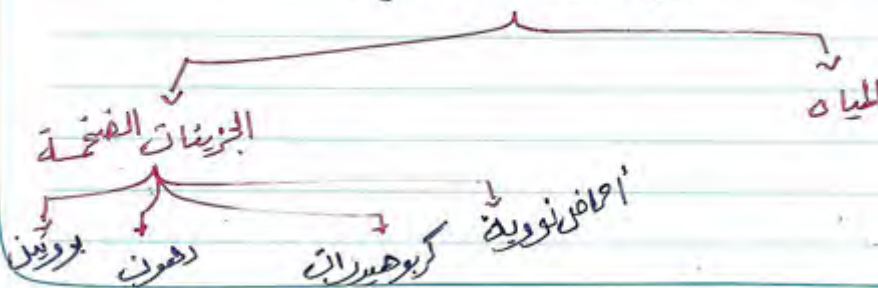 المياه
الجزيئات الضخمة
أحماض نووية
كربوهيدرات
دهون
بروتين